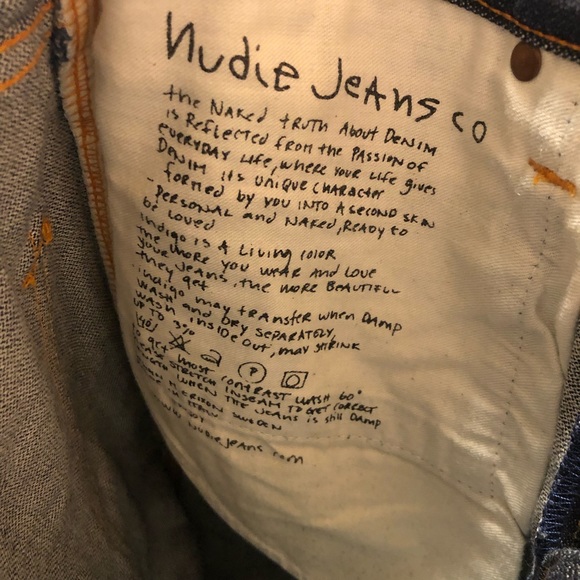 nudie Jeans co
the NAKed tRUth About DENIM
is Reflected from the PASSION of
EVERYDAY LIFE, where YOUR LIFE gives
DENIM its UNIQUE CHARACTER
- formed by you INTO A SECOND SKIN
- PERSONAL and NAKED, READY to
be Loved
Indigo is A Living color
the more you WEAR AND LOVE
YOUR JEANS, the MORE BEAUTIFULL
they get
indigo may transfer when DAMP
WASH AND DRY SEPARATELY,
WASH INSIDE OUT, may SHRINK
UP TO 3%
P
to get MOST CONTRAST WASH 60°
PLEASE STRETCH INSEAM TO GET CORRECT
LENGTH WHEN THE JEANS is still DAMP
SWEDEN
NudieJeans.com